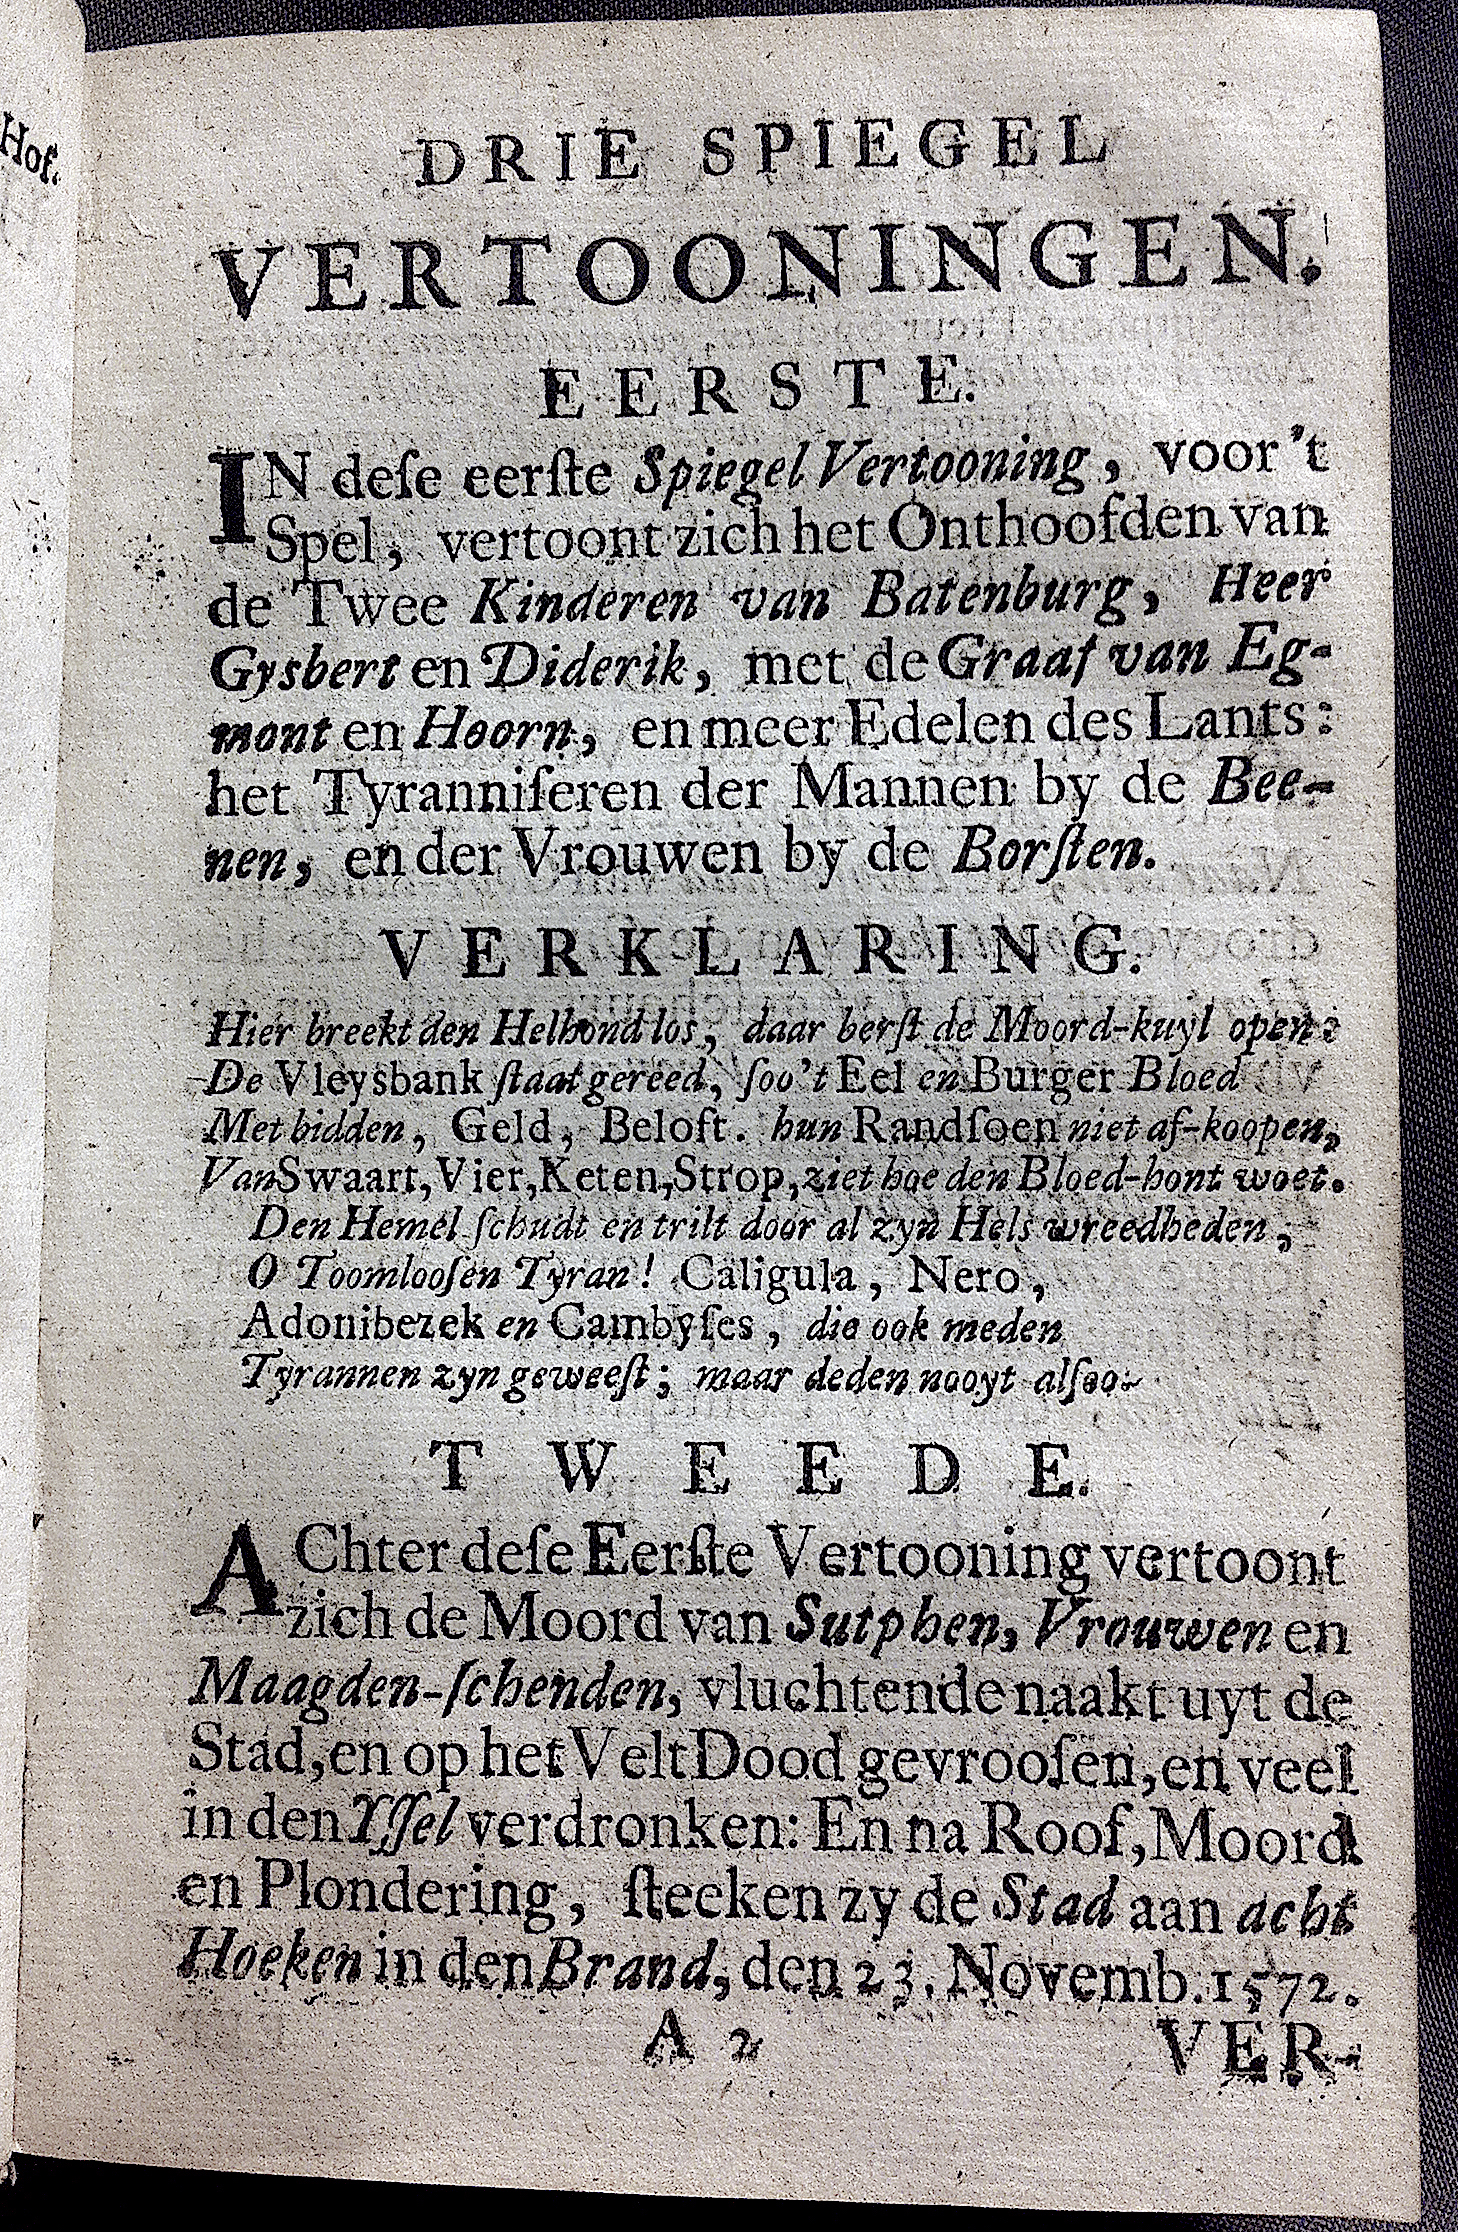 Hof.
DRIE SPIEGEL
VERTOONINGEN.
EERSTE.
IN deſe eerſte Spiegel Vertooning, voor 't
Spel, vertoont zich het Onthoofden van
de Twee Kinderen van Batenburg, Heer
Gysbert en Diderik, met de Graaf van Eg-
mont en Hoorn, en meer Edelen des Lants:
het Tyranniſeren der Mannen by de Bee-
nen, en der Vrouwen by de Borſten.
VERKLARING.
Hier breekt den Helhond los, daar berſt de Moord-kuyl open:
De Vleysbank ſtaat gereed, ſoo 't Eel en Burger Bloed
Met bidden, Geld, Beloft. hun Randſoen niet af-koopen,
Van Swaart, Vier, Keten, Strop, ziet hoe den Bloed-hont woet.
Den Hemel ſchudt en trilt door al zyn Hels wreedheden,
O Toomlooſen Tyran! Caligula, Nero,
Adonibezek en Cambyſes, die ook meden
Tyrannen zyn geweeſt; maar deden nooyt alſoo.
TWEEDE.
AChter deſe Eerſte Vertooning vertoont
zich de Moord van Sutphen, Vrouwen en
Maagden-ſchenden, vluchtende naakt uyt de
Stad, en op het Velt Dood gevrooſen, en veel
in den Yſſel verdronken: En na Roof, Moord
en Plondering, ſteeken zy de Stad aan acht
Hoeken in den Brand, den 23. Novemb. 1572.
A 2
VER-